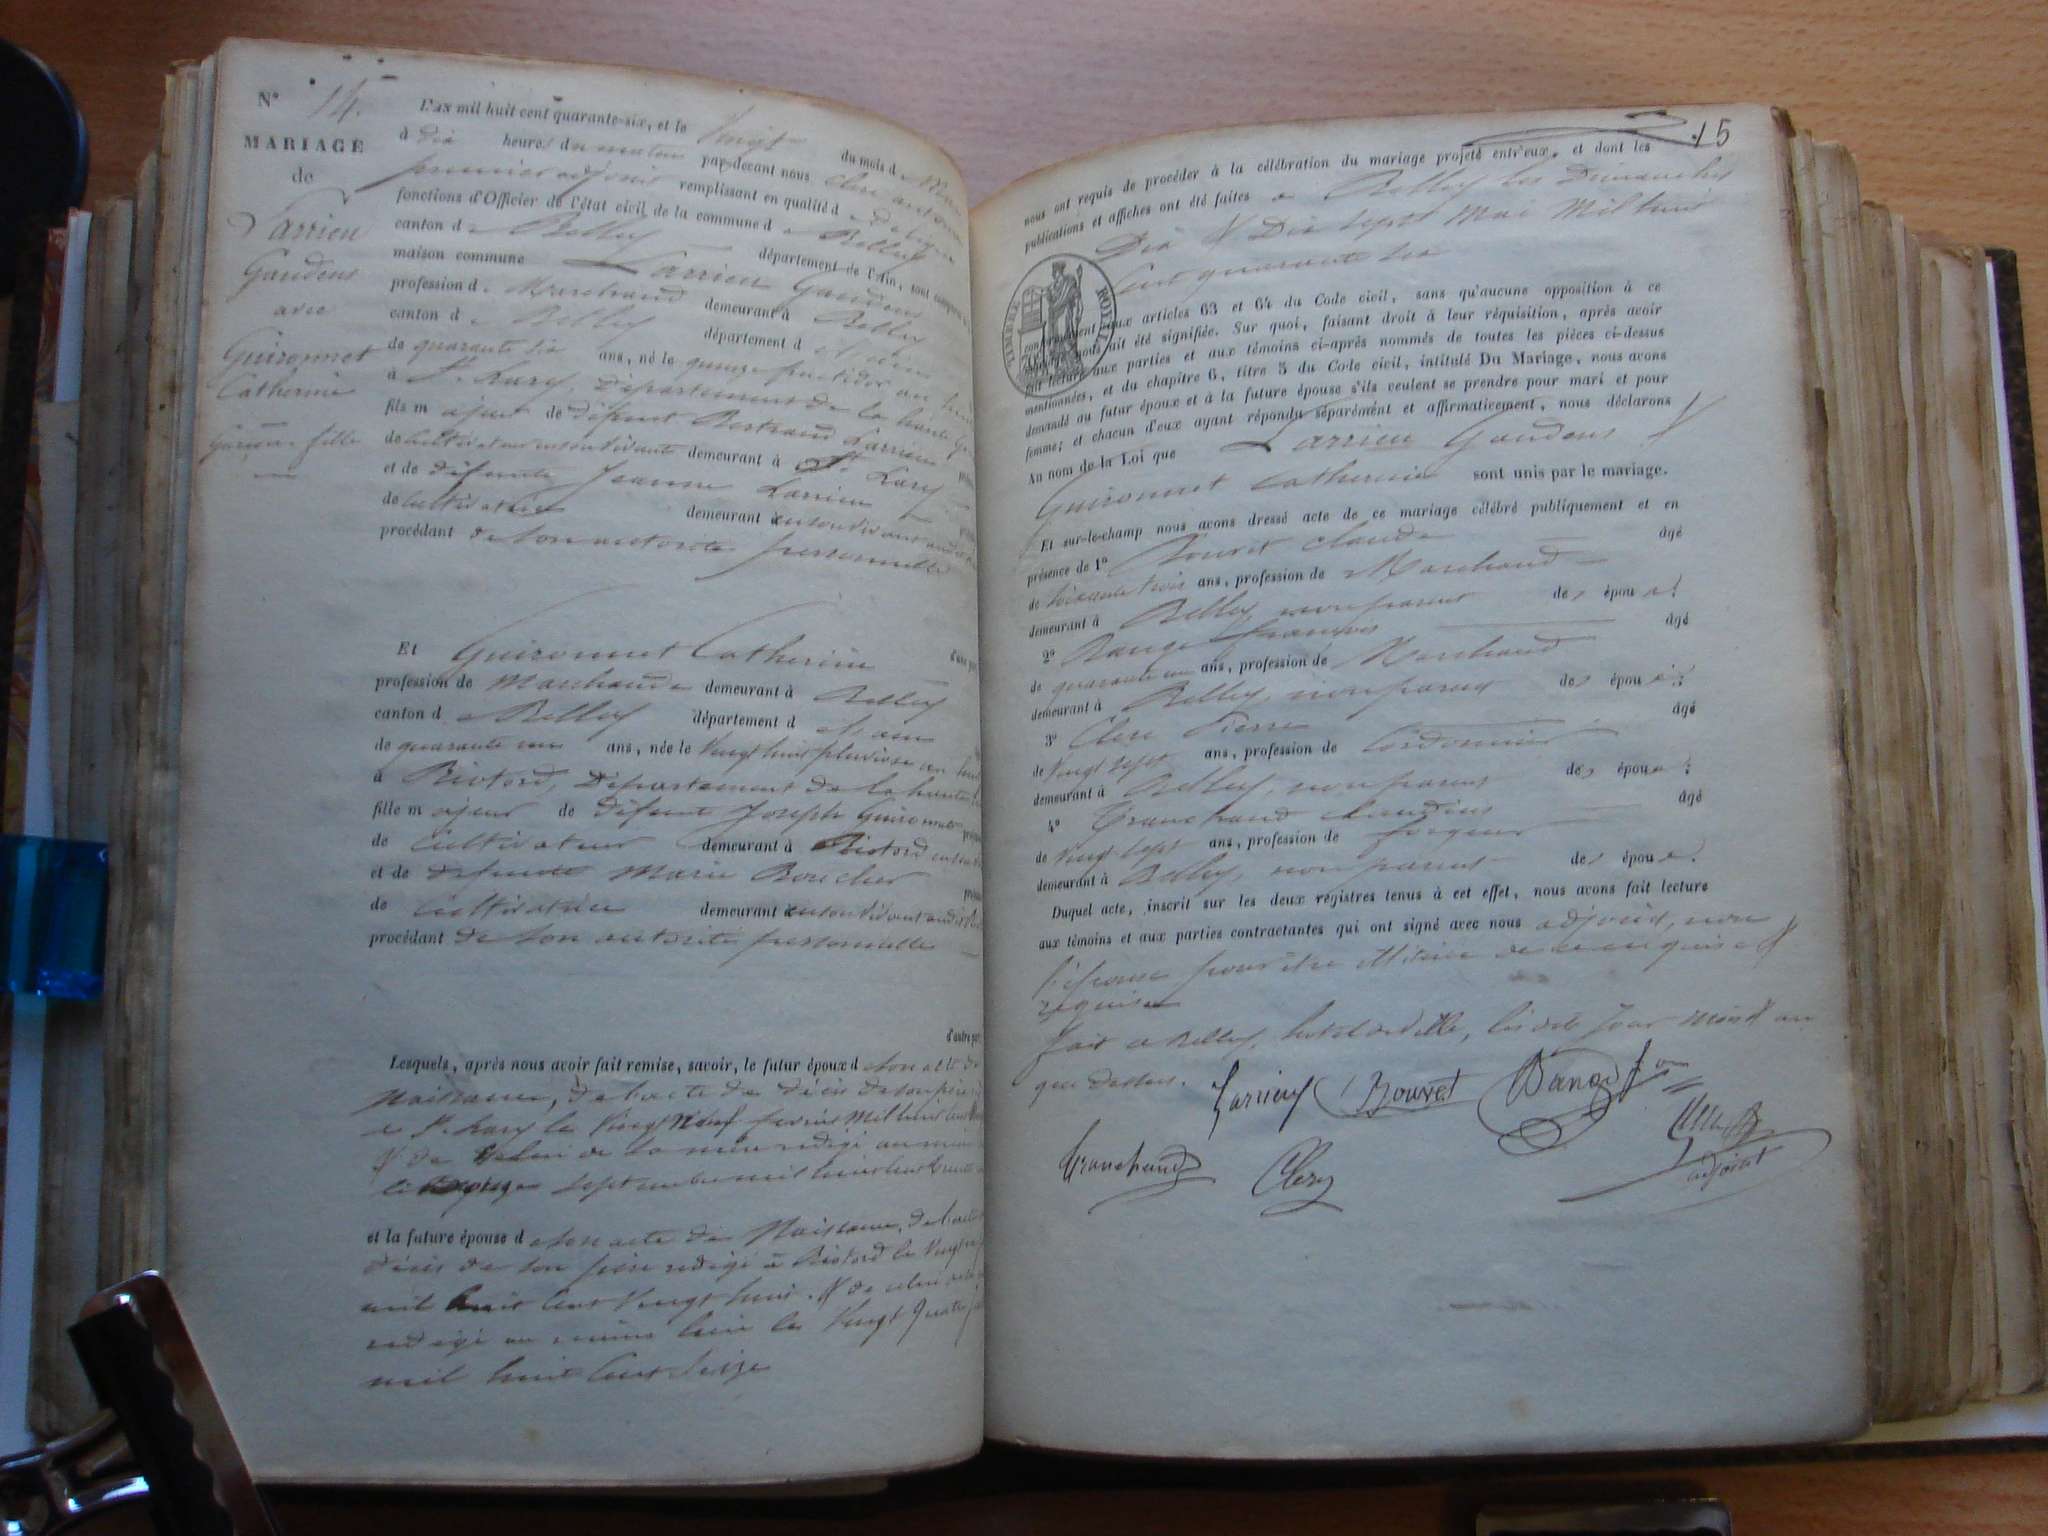 N° 14.
MARIAGE
de
Larrieu
Gaudens
avec
Guironnet
Catherine
Garçon fille
L'an mil huit cent quarante-six, et le vingt du mois de Mai
à dix heures du matin par-devant nous Clerc antoine
premier adjoint remplissant en qualité de délégué
fonctions d'Officier de l'état civil de la commune de Belley
canton de Belley département de l'Ain, sont comparus à
maison commune Larrieu Gaudens
profession de Marchand demeurant à Belley
canton de Belley département de l'ain
de quarante six ans, né le quinze fructidor an huit
à St. Lary, Département de la haute
fils majeur de défunt Bertrand Larrieu
de Cultivateur en son vivant demeurant à St. Lary
et de défunte Jeanne Larrieu
de Cultivatrice demeurant en son vivant audit
procédant de son autorité personnelle
d'une part
Et Guironnet Catherine
profession de Marchande demeurant à Belley
canton de Belley département de l'ain
de quarante un ans, née le vingt huit pluviose an
à Riotord, Département de la haute
fille majeur de défunt Joseph Guironnet
de Cultivateur demeurant à Riotord
et de défunte Marie Boucher
de Cultivatrice demeurant en son vivant audit
procédant de son autorité personnelle
d'autre part
Lesquels, après nous avoir fait remise, savoir, le futur époux de son acte de
Naissance, de l'acte de décès de son père
à St. Lary le vingt neuf février mil huit cent
& de celui de la mère rédigé au même
septembre mil huit cent trente
et la future épouse de son acte de Naissance, de l'acte
décès de son père rédigé à Riotord le vingt
mil huit cent vingt huit & de celui de
rédigé au même lieu le vingt quatre
mil huit cent seize
15
nous ont requis de procéder à la célébration du mariage projeté entr'eux, et dont les
publications et affiches ont été faites à Belley les Dimanches
Dix & Dix sept Mai mil huit
Cent quarante six
TIMBRE ROYAL
conformément aux articles 63 et 64 du Code civil, sans qu'aucune opposition à ce
nous ait été signifiée. Sur quoi, faisant droit à leur réquisition, après avoir
fait lecture aux parties et aux témoins ci-après nommés de toutes les pièces ci-dessus
mentionnées, et du chapitre 6, titre 5 du Code civil, intitulé Du Mariage, nous avons
demandé au futur époux et à la future épouse s'ils veulent se prendre pour mari et pour
femme; et chacun d'eux ayant répondu séparément et affirmativement, nous déclarons
Au nom de la Loi que Larrieu Gaudens &
Guironnet Catherine sont unis par le mariage.
Et sur-le-champ nous avons dressé acte de ce mariage célébré publiquement et en
présence de 1° Bouvet Claude âgé
de soixante trois ans, profession de Marchand
demeurant à Belley, non parent des époux;
2° Dange françois âgé
de quarante un ans, profession de Marchand
demeurant à Belley, non parent des époux;
3° Clerc Pierre âgé
de vingt sept ans, profession de Cordonnier
demeurant à Belley, non parent des époux;
4° Tranchand Claudius âgé
de vingt sept ans, profession de forgeur
demeurant à Belley, non parent des époux.
Duquel acte, inscrit sur les deux régistres tenus à cet effet, nous avons fait lecture
aux témoins et aux parties contractantes qui ont signé avec nous adjoint, non
l'épouse pour être illitérée de ce enquise &
requise
fait à Belley, hotel de ville, les dits jour mois & an
que dessus.
Larrieu Bouvet Dange fois
Tranchand Clerc
adjoint